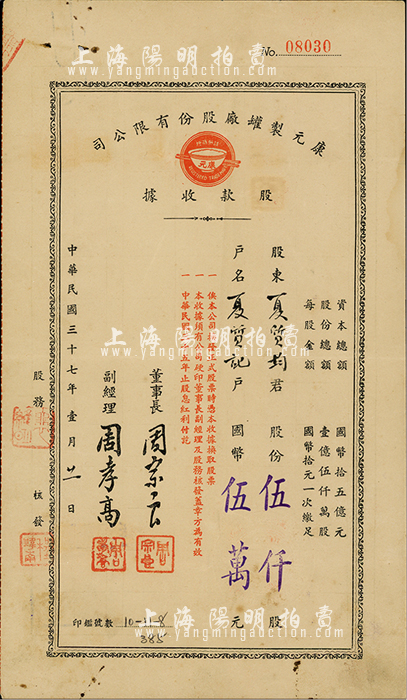 上海陽明拍賣
www.yangmingauction.com
No. 08030
康元製罐廠股份有限公司
康元
股款收據
資本總額 國幣拾五億元
股份總額 壹億伍仟萬股
每股金額 國幣拾元一次繳足
股東 夏質均 君 股份 伍仟 股
戶名 夏質記 戶 國幣 伍萬 元
一 俟本公司
正式股票時憑本收據換取股票
一 本收據須有公司硬印董事長副經理及股務核發蓋章方為有效
一 中華民國
五年止股息紅利付訖
董事長 周宗良
副經理 周孝高
中華民國三十七年壹月廿一日
股務
核發
印鑑號數 10-11-8
385
上海陽明拍賣
www.yangmingauction.com
上海陽明拍賣
www.yangmingauction.com